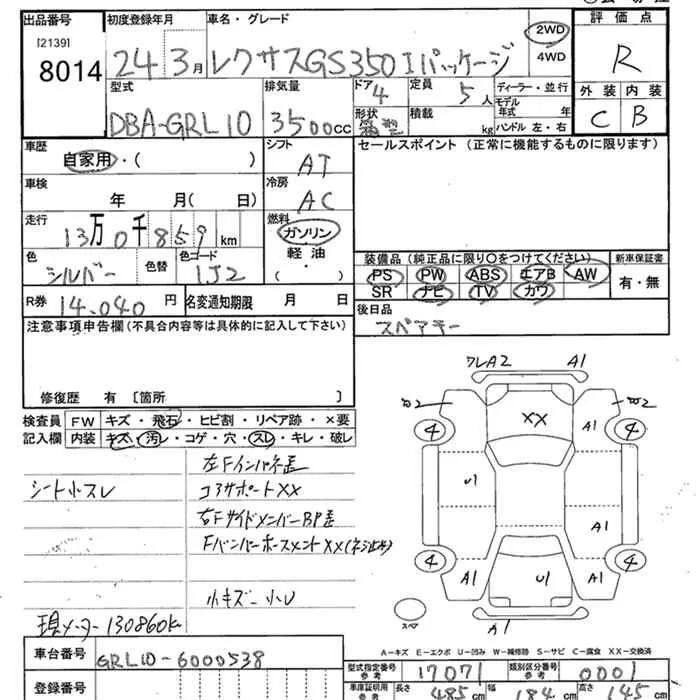 出品番号 初度登録年月 車名・グレード 評価点
[2139]
8014 24 3月 レクサスGS350 Iパッケージ 2WD R
4WD
型式 排気量 ドア 4 定員 5人 ディーラー・並行 外装 内装
DBA-GRL10 3500cc 形状 積載 kg モデル年式 年 C B
ハンドル 左・右
車歴 シフト セールスポイント (正常に機能するものに限ります)
自家用・( ) AT
車検 冷房
年 月( 日) AC
走行 燃料
13万0千859km ガソリン
色 色替 色コード 軽油・ 装備品 (純正品に限り○をつけてください) 新車保証書
シルバー 1J2 ( ) PS PW ABS エアB AW 有・無
R券 14.040円 名変通知期限 月 日 SR ナビ TV カワ
注意事項申告欄(不具合内容等は具体的に記入して下さい) 後日品
スペアキー
修復歴 有 〔箇所 〕
検査員 FW キズ・飛石・ヒビ割・リペア跡・×要
記入欄 内装 キズ・汚レ・コゲ・穴・スレ・キレ・破レ
シート小スレ 左Fインパネ歪
コアサポートXX
右FサイドメンバーBP歪
FバンパーホースメントXX(ネジ止め)
小キズ‐小レ
現メーター130860k
ワレA2 A1
XX
A1
4 4
U1
A1
4 4
A1 U1 A1
スペア A1
A-キズ E-エクボ U-凹み W-補修跡 S-サビ C-腐食 XX-交換済
車台番号 GRL10-6000538 型式指定番号 参考 17071 類別区分番号 参考 0001
登録番号 車庫証明用 参考 長さ 485cm 幅 184cm 高さ 145cm